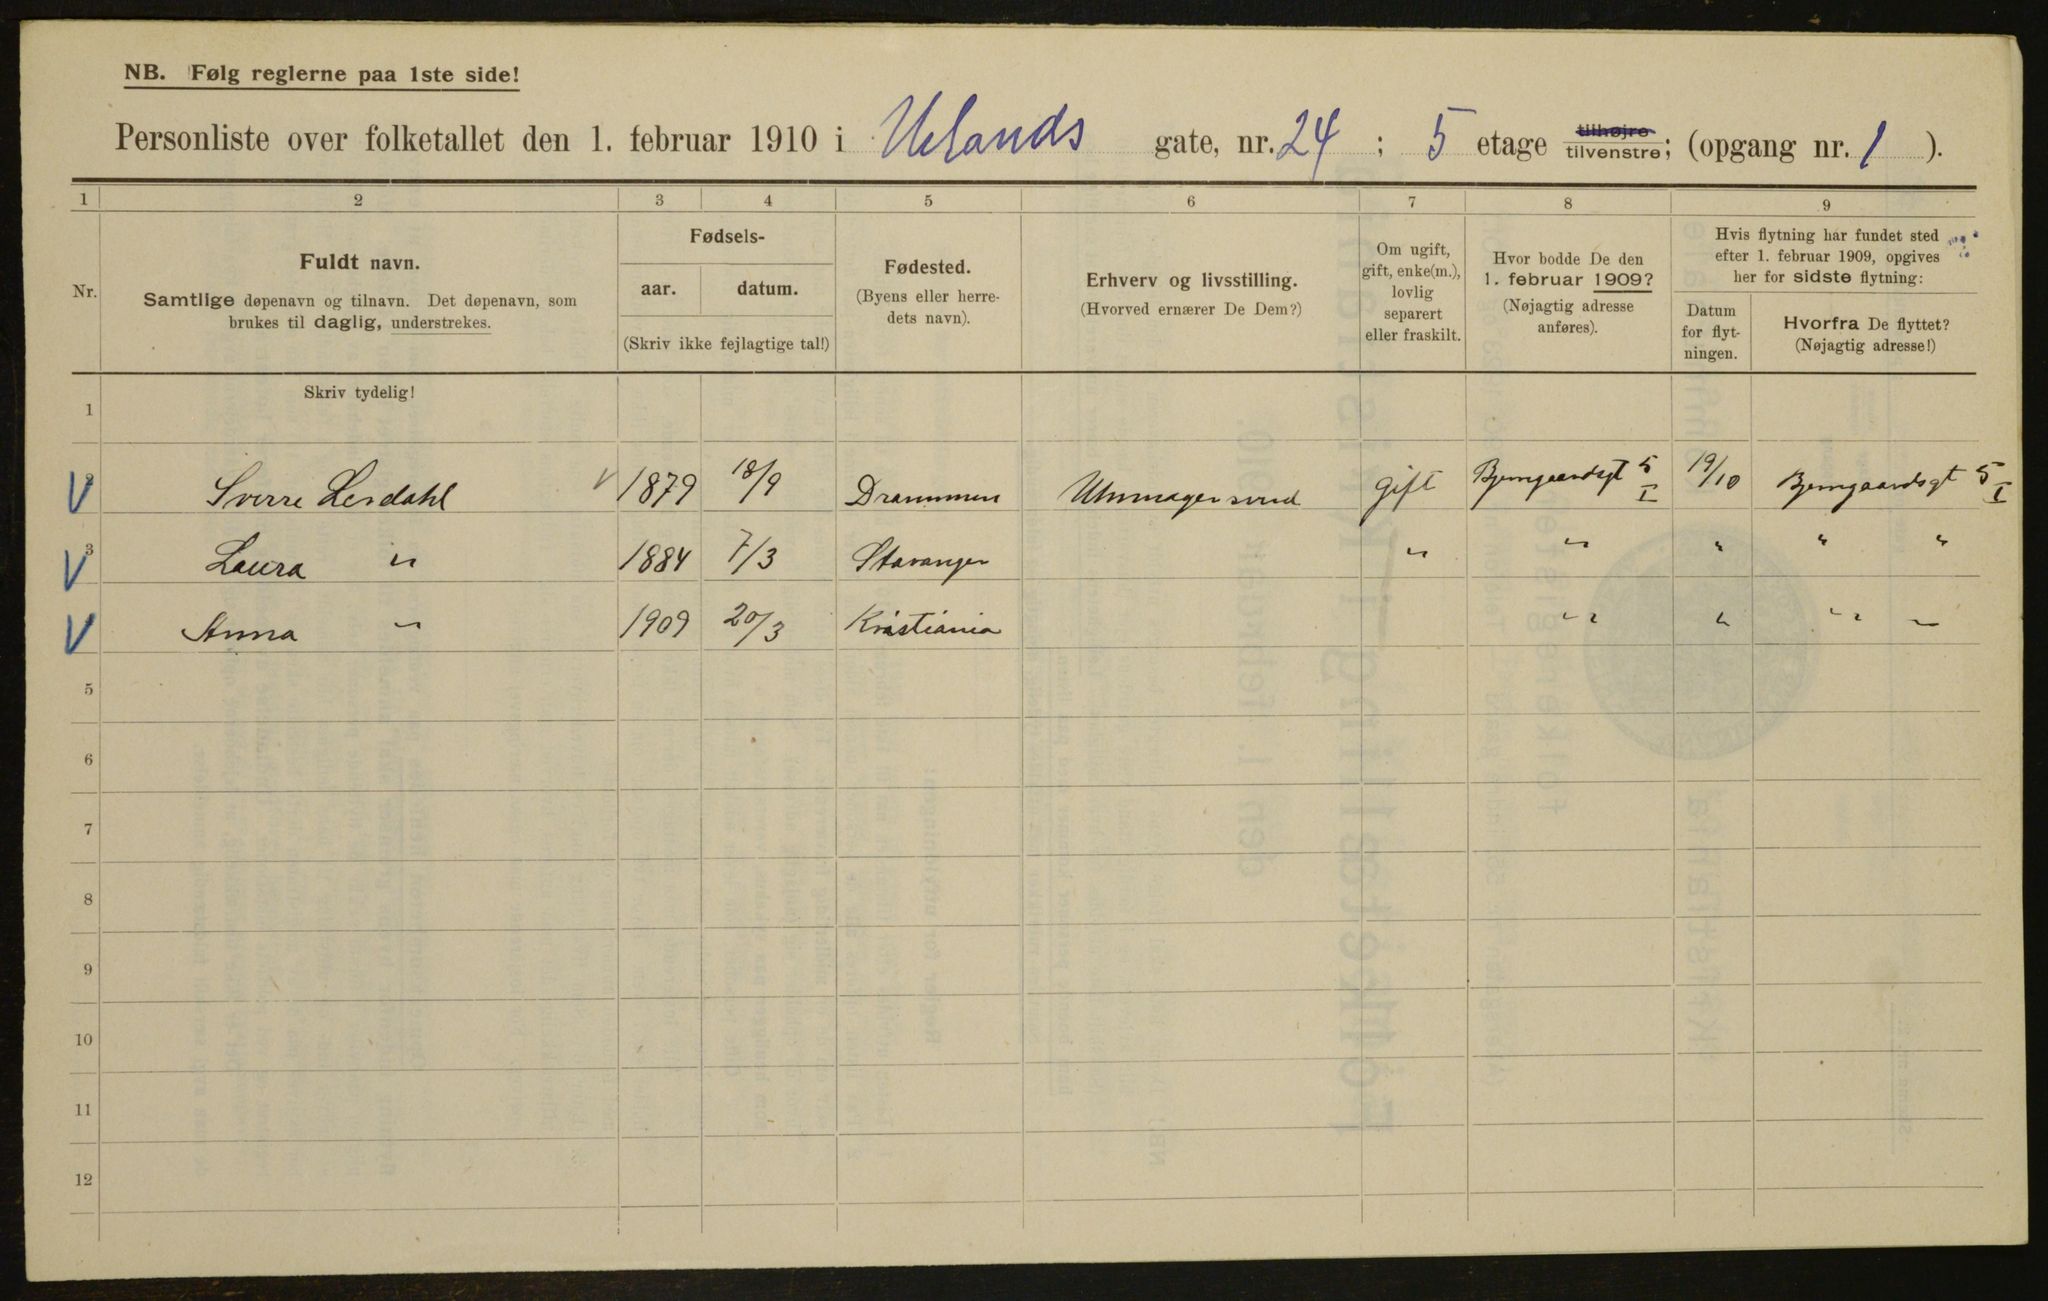 NB. Følg reglerne paa 1ste side!
Personliste over folketallet den 1. februar 1910 i Uelands gate, nr. 24 ; 5 etage tilhøjre tilvenstre; (opgang nr. 1 ).
1 2 3 4 5 6 7 8 9
Nr.
Fuldt navn.
Samtlige døpenavn og tilnavn. Det døpenavn, som
brukes til daglig, understrekes.
Fødsels-
aar. datum.
(Skriv ikke fejlagtige tal!)
Fødested.
(Byens eller herre-
dets navn).
Erhverv og livsstilling.
(Hvorved ernærer De Dem?)
Om ugift,
gift, enke(m.),
lovlig
separert
eller fraskilt.
Hvor bodde De den
1. februar 1909?
(Nøjagtig adresse
anføres).
Hvis flytning har fundet sted
efter 1. februar 1909, opgives
her for sidste flytning:
Datum
for flyt-
ningen.
Hvorfra De flyttet?
(Nøjagtig adresse!)
Skriv tydelig!
1
2 Sverre Lerdahl 1879 18/9 Drammen Uhrmagersvend gift Bjerregaardsgt 5 I 19/10 Bjerregaardsgt 5 I
3 Laura " 1884 7/3 Stavanger " " " " "
Anna " 1909 20/3 Kristiania " " " "
5
6
7
8
9
10
11
12